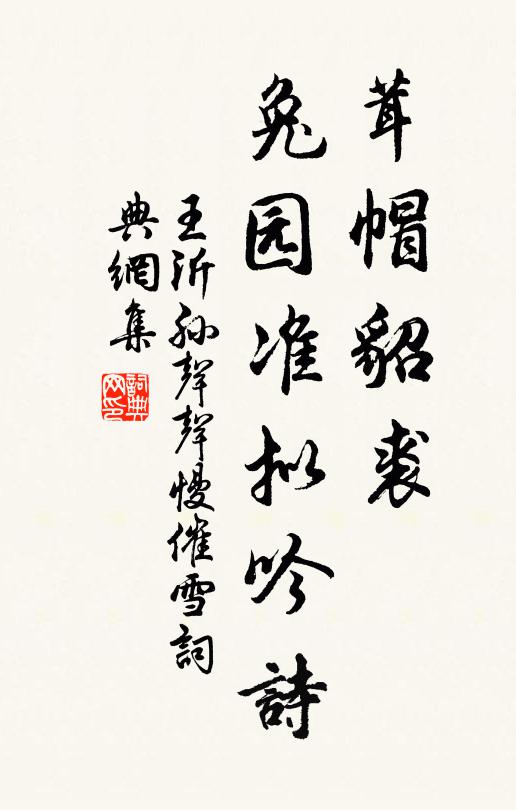 茸帽貂裘
兔园准拟吟詩
王沂孙聲聲慢催雪詞
典網集
詞典网印